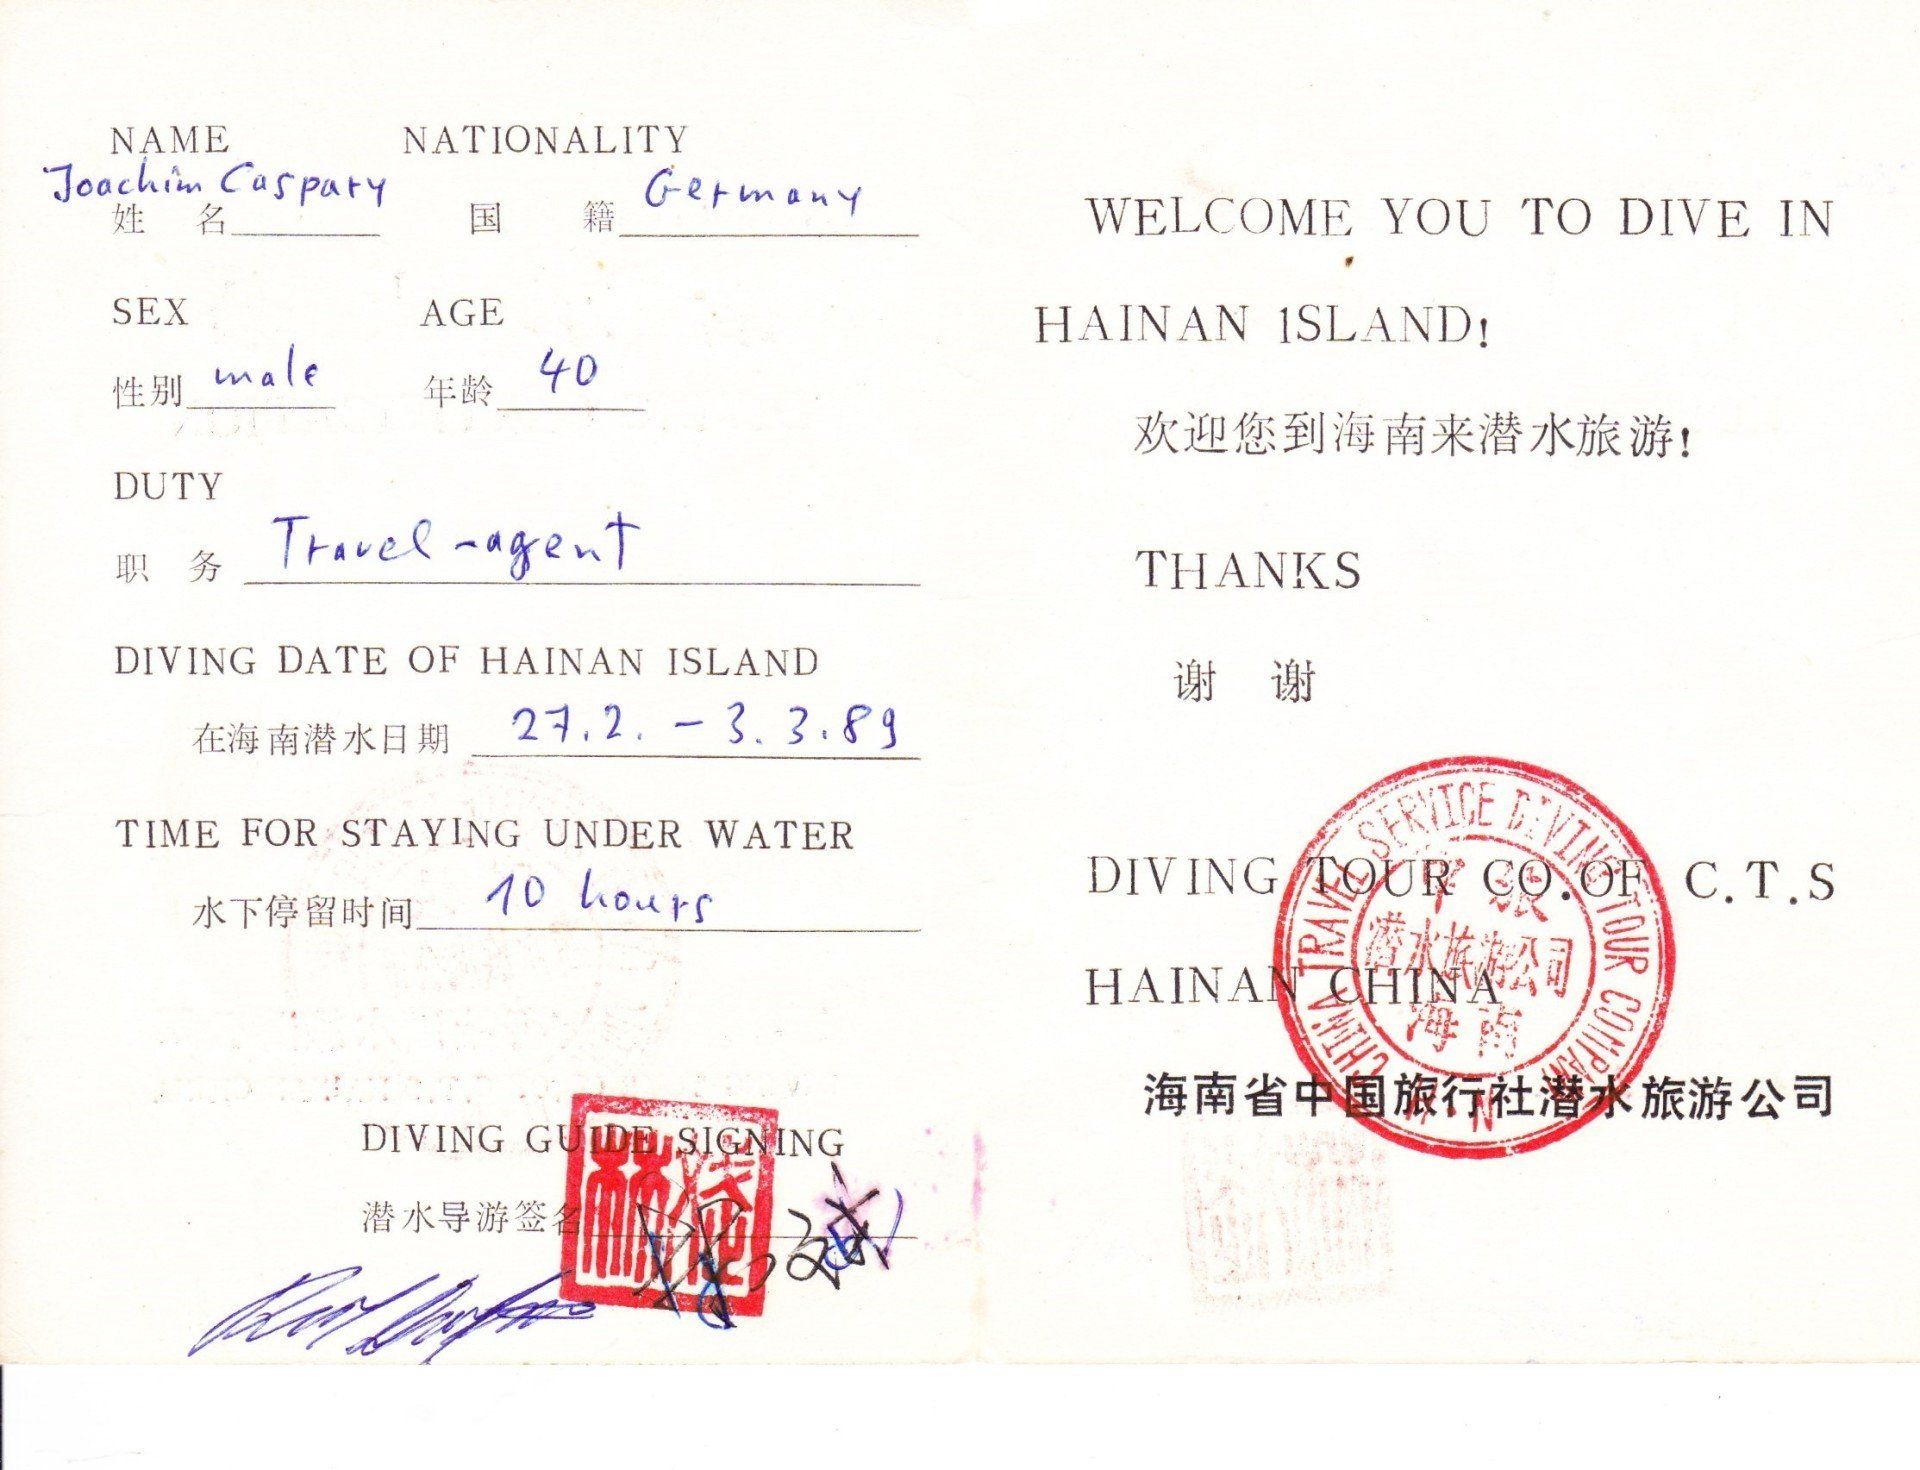 NAME NATIONALITY
Joachim Caspary Germany
姓 名 国 籍
SEX AGE
性别 male 年龄 40
DUTY
职 务 Travel-agent
DIVING DATE OF HAINAN ISLAND
在海南潜水日期 27.2. - 3.3.89
TIME FOR STAYING UNDER WATER
水下停留时间 10 hours
DIVING GUIDE SIGNING
潜水导游签名
WELCOME YOU TO DIVE IN
HAINAN ISLAND!
欢迎您到海南来潜水旅游!
THANKS
谢 谢
DIVING TOUR CO.OF C.T.S
HAINAN CHINA
海南省中国旅行社潜水旅游公司
CHINA TRAVEL SERVICE DIVING TOUR COMPANY
中旅
潜水旅游公司
海南